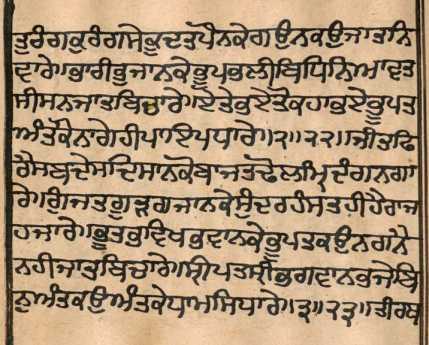 ਤੁਰੰਗਕੁਰੰਗਸੇਕੂਦਤਪੌਨਕੇਗਉਨਕਉਜਾਤਨਿ
ਵਾਰੇ॥ਭਾਰੀਭੁਜਾਨਕੇਭੂਪਭਲੀਬਿਧਿਨਿਆਵਤ
ਸੀਸਨਜਾਤਬਿਚਾਰੇ॥ਏਤੇਭਏਤੌਕਹਾਭਏਭੂਪਤ
ਅੰਤਕੌਨਾਗੇਹੀਪਾਇਪਧਾਰੇ॥੨॥੨੨॥ਜੀਤਫਿ
ਰੈਸਭਦੇਸਦਿਸਾਨਕੋਬਾਜਤਢੋਲਮ੍ਰਿਦੰਗਨਗਾ
ਰੇ॥ਗੁੰਜਤਗੂੜਗਜਾਨਕੇਸੁੰਦਰਹੰਸਤਹੀਹੈਰਾਜ
ਹਜਾਰੇ॥ਭੂਤਭਵਿਖਭਵਾਨਕੇਭੂਪਤਕਉਨਗਨੈ
ਨਹੀਜਾਤਬਿਚਾਰੇ॥ਸ੍ਰੀਪਤਸ੍ਰੀਭਗਵਾਨਭਜੇਬਿ
ਨੁਅੰਤਕਉਅੰਤਕੇਧਾਮਸਿਧਾਰੇ॥੩॥੨੩॥ਤੀਰਥ